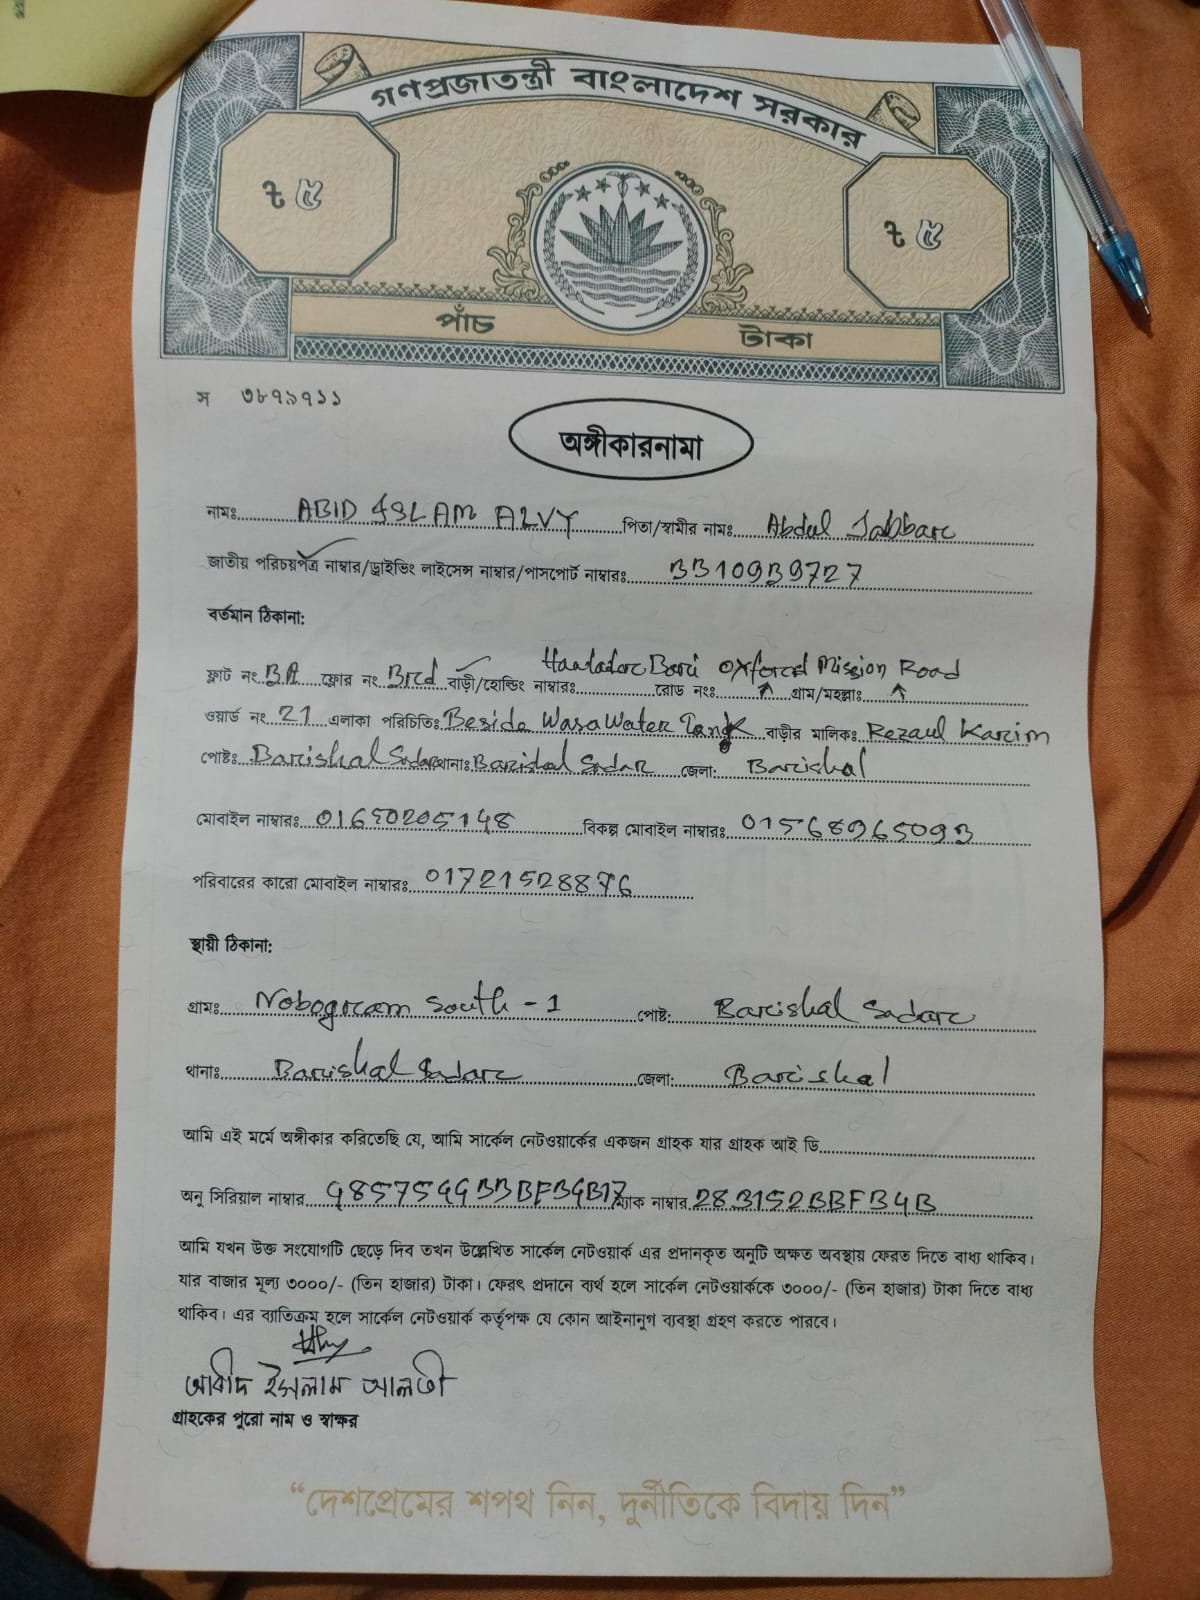 গণপ্রজাতন্ত্রী বাংলাদেশ সরকার
৳ ৫
৳ ৫
পাঁচ টাকা
স ৩৮৭৯৭১১
অঙ্গীকারনামা
নামঃ ABID ISLAM ALVY পিতা/স্বামীর নামঃ Abdul Jabbar
জাতীয় পরিচয়পত্র নাম্বার/ড্রাইভিং লাইসেন্স নাম্বার/পাসপোর্ট নাম্বারঃ 3310939727
বর্তমান ঠিকানা:
ফ্লাট নং 3A ফ্লোর নং 3rd বাড়ী/হোল্ডিং নাম্বারঃ Bari রোড নংঃ Oxford Mission Road গ্রাম/মহল্লাঃ
ওয়ার্ড নং 21 এলাকা পরিচিতিঃ Beside Wasa Water Tank বাড়ীর মালিকঃ Rezaul Karim
পোষ্টঃ Barishal Sadar থানাঃ Barishal Sadar জেলা: Barishal
মোবাইল নাম্বারঃ বিকল্প মোবাইল নাম্বারঃ 01568965093
পরিবারের কারো মোবাইল নাম্বারঃ 01721528876
স্থায়ী ঠিকানা:
গ্রামঃ Nobogram South - 1 পোষ্ট: Barishal Sadar
থানাঃ Barishal Sadar জেলা: Barishal
আমি এই মর্মে অঙ্গীকার করিতেছি যে, আমি সার্কেল নেটওয়ার্কের একজন গ্রাহক যার গ্রাহক আই ডি
অনু সিরিয়াল নাম্বার ম্যাক নাম্বার 283152BBFB4B
আমি যখন উক্ত সংযোগটি ছেড়ে দিব তখন উল্লেখিত সার্কেল নেটওয়ার্ক এর প্রদানকৃত অনুটি অক্ষত অবস্থায় ফেরত দিতে বাধ্য থাকিব।
যার বাজার মূল্য ৩০০০/- (তিন হাজার) টাকা। ফেরৎ প্রদানে ব্যর্থ হলে সার্কেল নেটওয়ার্ককে ৩০০০/- (তিন হাজার) টাকা দিতে বাধ্য
থাকিব। এর ব্যাতিক্রম হলে সার্কেল নেটওয়ার্ক কর্তৃপক্ষ যে কোন আইনানুগ ব্যবস্থা গ্রহণ করতে পারবে।
আবীদ ইসলাম আলভী
গ্রাহকের পুরো নাম ও স্বাক্ষর
“দেশপ্রেমের শপথ নিন, দুর্নীতিকে বিদায় দিন”